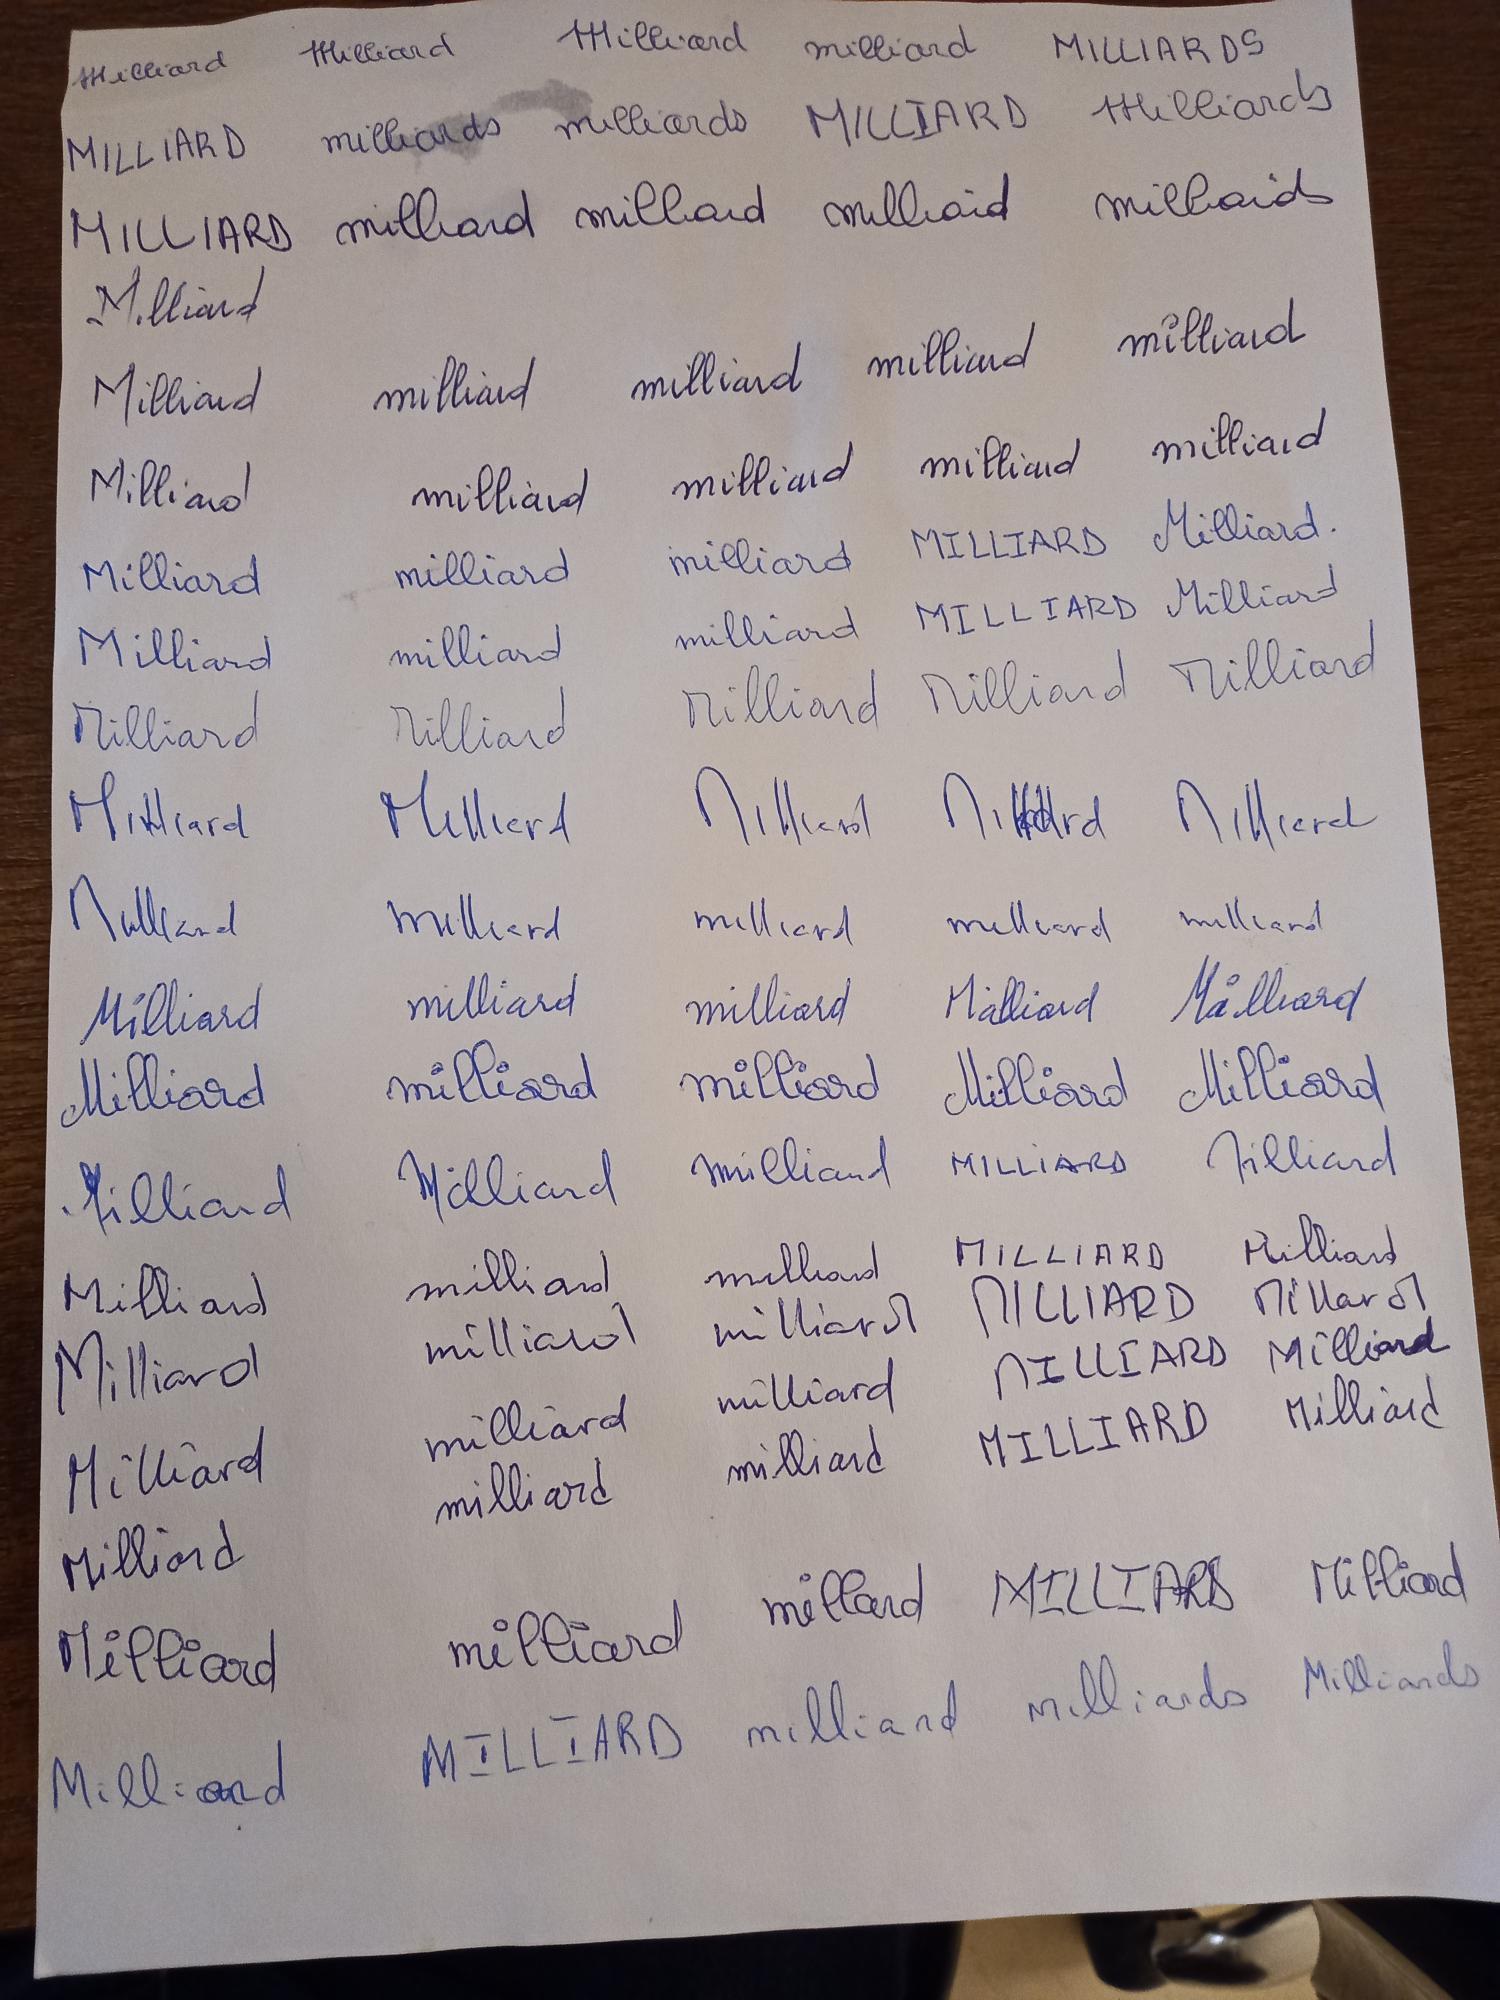 Milliard Milliard Milliard milliard MILLIARDS
MILLIARD milliards milliards MILLIARD Milliards
MILLIARD milliard milliard milliard milliards
Milliard
Milliard milliard milliard milliard milliard
Milliard milliard milliard milliard milliard
Milliard milliard milliard MILLIARD Milliard.
Milliard milliard milliard MILLIARD Milliard
Milliard Milliard Milliard Milliard Milliard
Milliard Milliard Milliard Milliard
Milliard milliard milliard milliard milliard
Milliard milliard milliard Milliard Milliard
Milliard milliard milliard Milliard Milliard
Milliard Milliard milliard MILLIARD Milliard
Milliard milliard milliard MILLIARD Milliard
Milliard milliard milliard MILLIARD Millard
Milliard milliard milliard MILLIARD Milliard
Milliard milliard milliard MILLIARD Milliard
Milliard milliard millard MILLIARD Milliard
Milliard MILLIARD milliard milliards Milliards